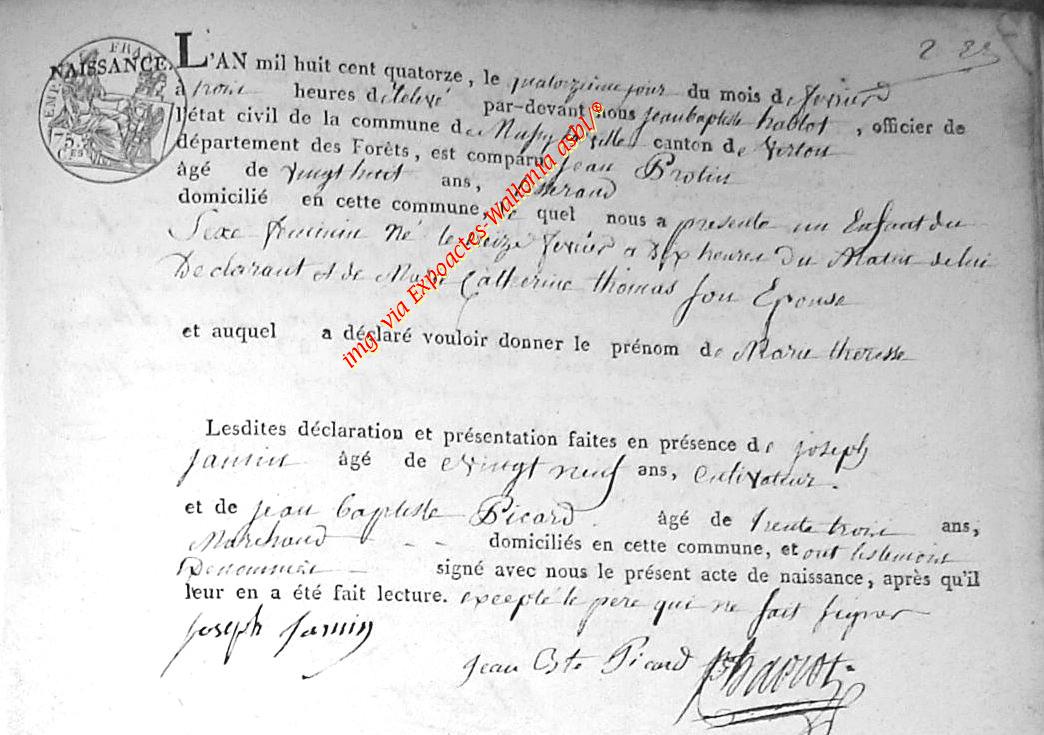 2 23
FRAN
EMP
75.
CES
NAISSANCE. L'AN mil huit cent quatorze, le quatorzieme jour du mois de fevrier
à trois heures de relevé par-devant nous jean baptiste hablot, officier de
l'état civil de la commune de Mussy la ville canton de virton
département des Forêts, est comparu jean Protin
âgé de vingt huit ans,
domicilié en cette commune, le quel nous a presenté un Enfant du
Sexe feminin Né le treize fevrier a Dix heures Du Matin de lui
Declarant et de Marie Catherine thomas son Epouse
et auquel a déclaré vouloir donner le prénom de Marie theresse
Lesdites déclaration et présentation faites en présence de joseph
jamin âgé de vingt neuf ans, Cultivateur.
et de jean baptiste Picard âgé de trente trois ans,
Marchand - - domiciliés en cette commune, et ont les temoins
Denommés - signé avec nous le présent acte de naissance, après qu'il
leur en a été fait lecture. excepté le pere qui ne sait signer
joseph jamin
jean Bte Picard
img via Expoactes-Wallonia asbl/©